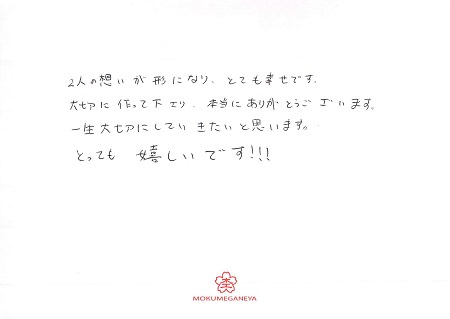 2人の想いが形になり、とても幸せです。
大切に作って下さり、本当にありがとうございます。
一生大切にしていきたいと思います。
とっても 嬉しいです!!!
MOKUMEGANEYA